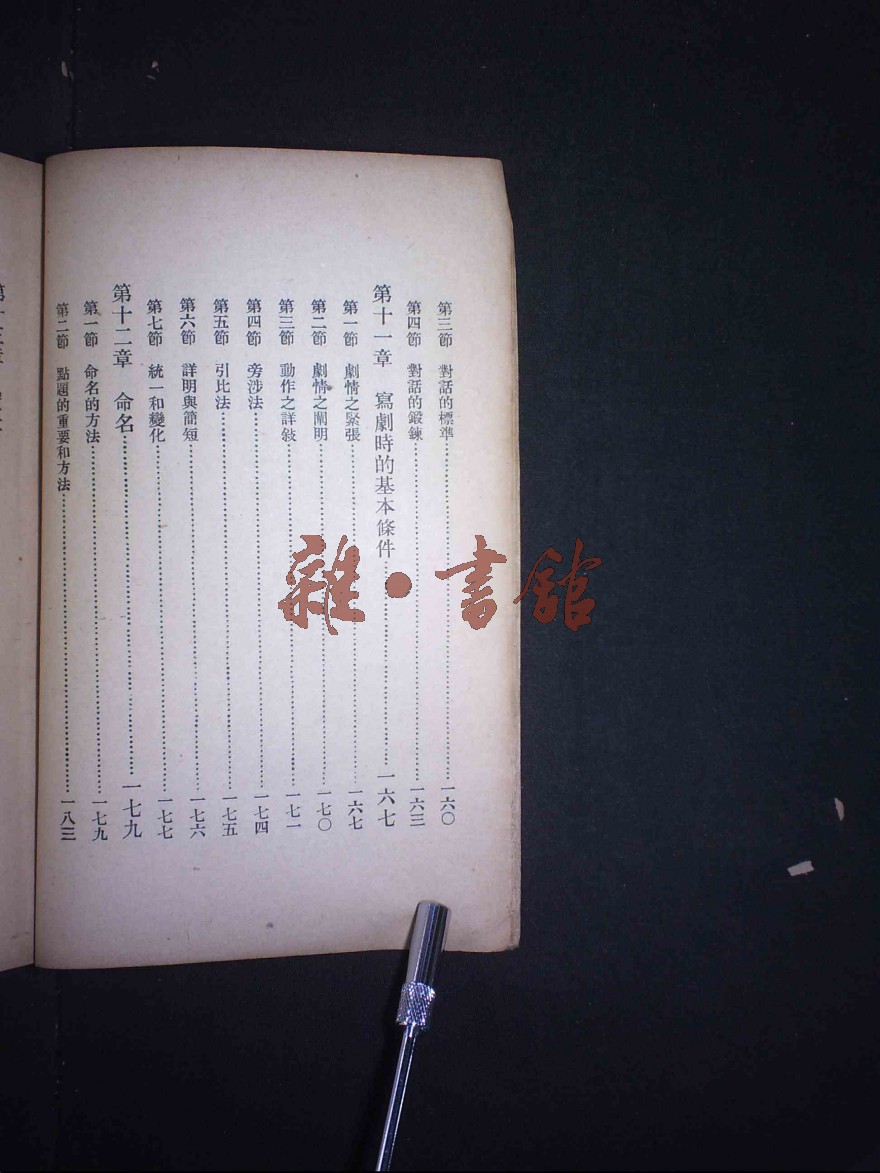 第三節 對話的標準⋯⋯一六〇
第四節 對話的鍛鍊⋯⋯一六三
第十一章 寫劇時的基本條件⋯⋯一六七
第一節 劇情之緊張⋯⋯一六七
第二節 劇情之闡明⋯⋯一七〇
第三節 動作之詳敍⋯⋯一七一
第四節 旁涉法⋯⋯一七四
第五節 引比法⋯⋯一七五
第六節 詳明與簡短⋯⋯一七六
第七節 統一和變化⋯⋯一七七
第十二章 命名⋯⋯一七九
第一節 命名的方法⋯⋯一七九
第二節 點題的重要和方法⋯⋯一八三
雜·書館